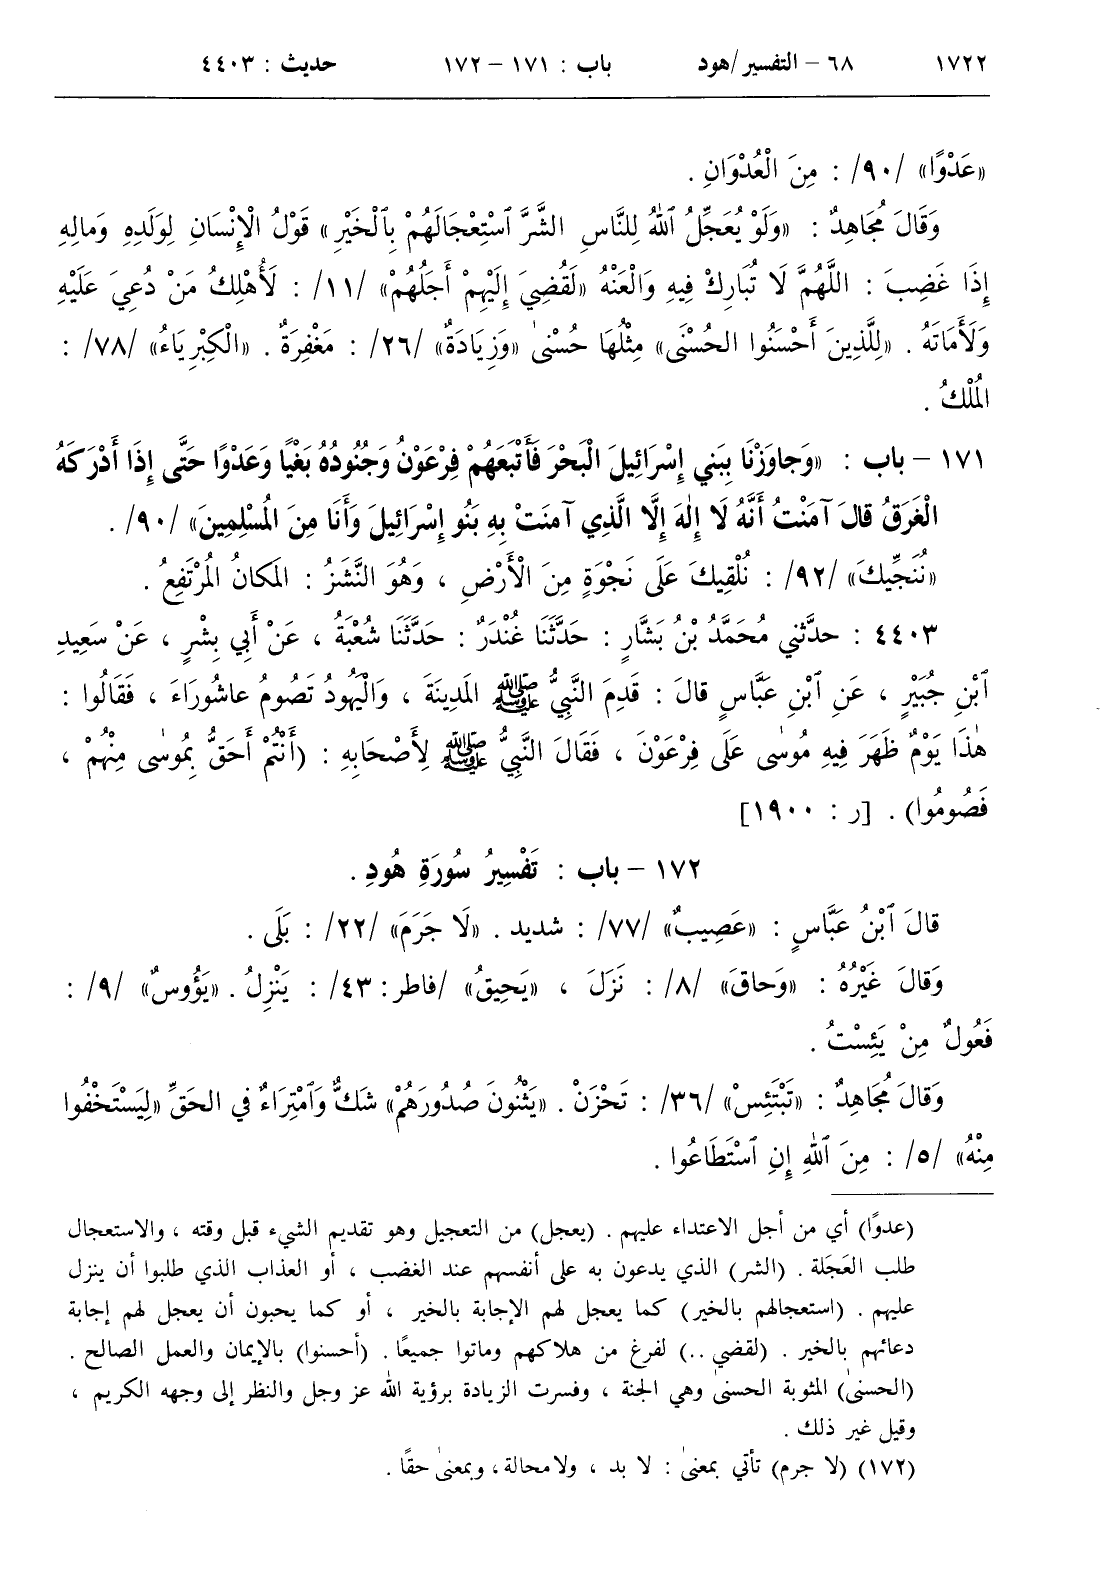 ١٧٢٢ ٦٨ – التفسير/هود باب : ١٧١ – ١٧٢ حديث : ٤٤٠٣
«عَدْوًا» /٩٠/ : مِنَ الْعُدْوَانِ .
وَقَالَ مُجَاهِدٌ : «وَلَوْ يُعَجِّلُ ٱللهُ لِلنَّاسِ الشَّرَّ ٱسْتِعْجَالَهُمْ بِٱلْخَيْرِ» قَوْلُ الْإِنْسَانِ لِوَلَدِهِ وَمالِهِ
إِذَا غَضِبَ : اللَّهُمَّ لَا تُبَارِكْ فِيهِ وَالْعَنْهُ «لَقُضِيَ إِلَيْهِمْ أَجَلُهُمْ» /١١/ : لَأُهْلِكُ مَنْ دُعِيَ عَلَيْهِ
وَلَأَمَاتَهُ . «لِلَّذِينَ أَحْسَنُوا الحُسْنَى» مِثْلُهَا حُسْنىٰ «وَزِيَادَةٌ» /٢٦/ : مَغْفِرَةٌ . «الْكِبْرِيَاءُ» /٧٨/ :
المُلْكُ .
١٧١ – باب : «وَجاوَزْنَا بِبَنِي إِسْرَائِيلَ الْبَحْرَ فَأَتْبَعَهُمْ فِرْعَوْنُ وَجُنُودُهُ بَغْيًا وَعَدْوًا حَتَّى إِذَا أَدْرَكَهُ
الْغَرَقُ قالَ آمَنْتُ أَنَّهُ لَا إِلٰهَ إِلَّا الَّذِي آمَنَتْ بِهِ بَنُو إِسْرَائِيلَ وَأَنَا مِنَ المُسْلِمِينَ» /٩٠/ .
«نُنَجِّيكَ» /٩٢/ : نُلْقِيكَ عَلَى نَجْوَةٍ مِنَ الْأَرْضِ ، وَهُوَ النَّشَزُ : المَكانُ المُرْتَفِعُ .
٤٤٠٣ : حدَّثني مُحَمَّدُ بْنُ بَشَّارٍ : حَدَّثَنَا غُنْدَرٌ : حَدَّثَنَا شُعْبَةُ ، عَنْ أَبِي بِشْرٍ ، عَنْ سَعِيدِ
ٱبْنِ جُبَيْرٍ ، عَنِ ٱبْنِ عَبَّاسٍ قالَ : قَدِمَ النَّبِيُّ ﷺ المَدِينَةَ ، وَالْيَهُودُ تَصُومُ عاشُورَاءَ ، فَقَالُوا :
هٰذَا يَوْمٌ ظَهَرَ فِيهِ مُوسٰى عَلَى فِرْعَوْنَ ، فَقَالَ النَّبِيُّ ﷺ لِأَصْحَابِهِ : (أَنْتُمْ أَحَقُّ بِمُوسٰى مِنْهُمْ ،
فَصُومُوا) . [ر : ١٩٠٠]
١٧٢ – باب : تَفْسِيرُ سُورَةِ هُودِ .
قالَ ٱبْنُ عَبَّاسٍ : «عَصِيبٌ» /٧٧/ : شديد . «لَا جَرَمَ» /٢٢/ : بَلَى .
وَقالَ غَيْرُهُ : «وَحاقَ» /٨/ : نَزَلَ ، «يَحِيقُ» /فاطر : ٤٣/ : يَنْزِلُ . «يَؤُوسٌ» /٩/ :
فَعُولٌ مِنْ يَئِسْتُ .
وَقالَ مُجَاهِدٌ : «تَبْتَئِسْ» /٣٦/ : تَحْزَنْ . «يَثْنُونَ صُدُورَهُمْ» شَكٌّ وَٱمْتِرَاءٌ فِي الحَقِّ «لِيَسْتَخْفُوا
مِنْهُ» /٥/ : مِنَ ٱللهِ إِنِ ٱسْتَطَاعُوا .
(عدوًا) أي من أجل الاعتداء عليهم . (يعجل) من التعجيل وهو تقديم الشيء قبل وقته ، والاستعجال
طلب العَجَلة . (الشر) الذي يدعون به على أنفسهم عند الغضب ، أو العذاب الذي طلبوا أن ينزل
عليهم . (استعجالهم بالخير) كما يعجل لهم الإجابة بالخير ، أو كما يحبون أن يعجل لهم إجابة
دعائهم بالخير . (لقضي ..) لفرغ من هلاكهم وماتوا جميعًا . (أحسنوا) بالإيمان والعمل الصالح .
(الحسنىٰ) المثوبة الحسنىٰ وهي الجنة ، وفسرت الزيادة برؤية الله عز وجل والنظر إلى وجهه الكريم ،
وقيل غير ذلك .
(١٧٢) (لا جرم) تأتي بمعنىٰ : لا بد ، ولا محالة ، وبمعنىٰ حقًا .